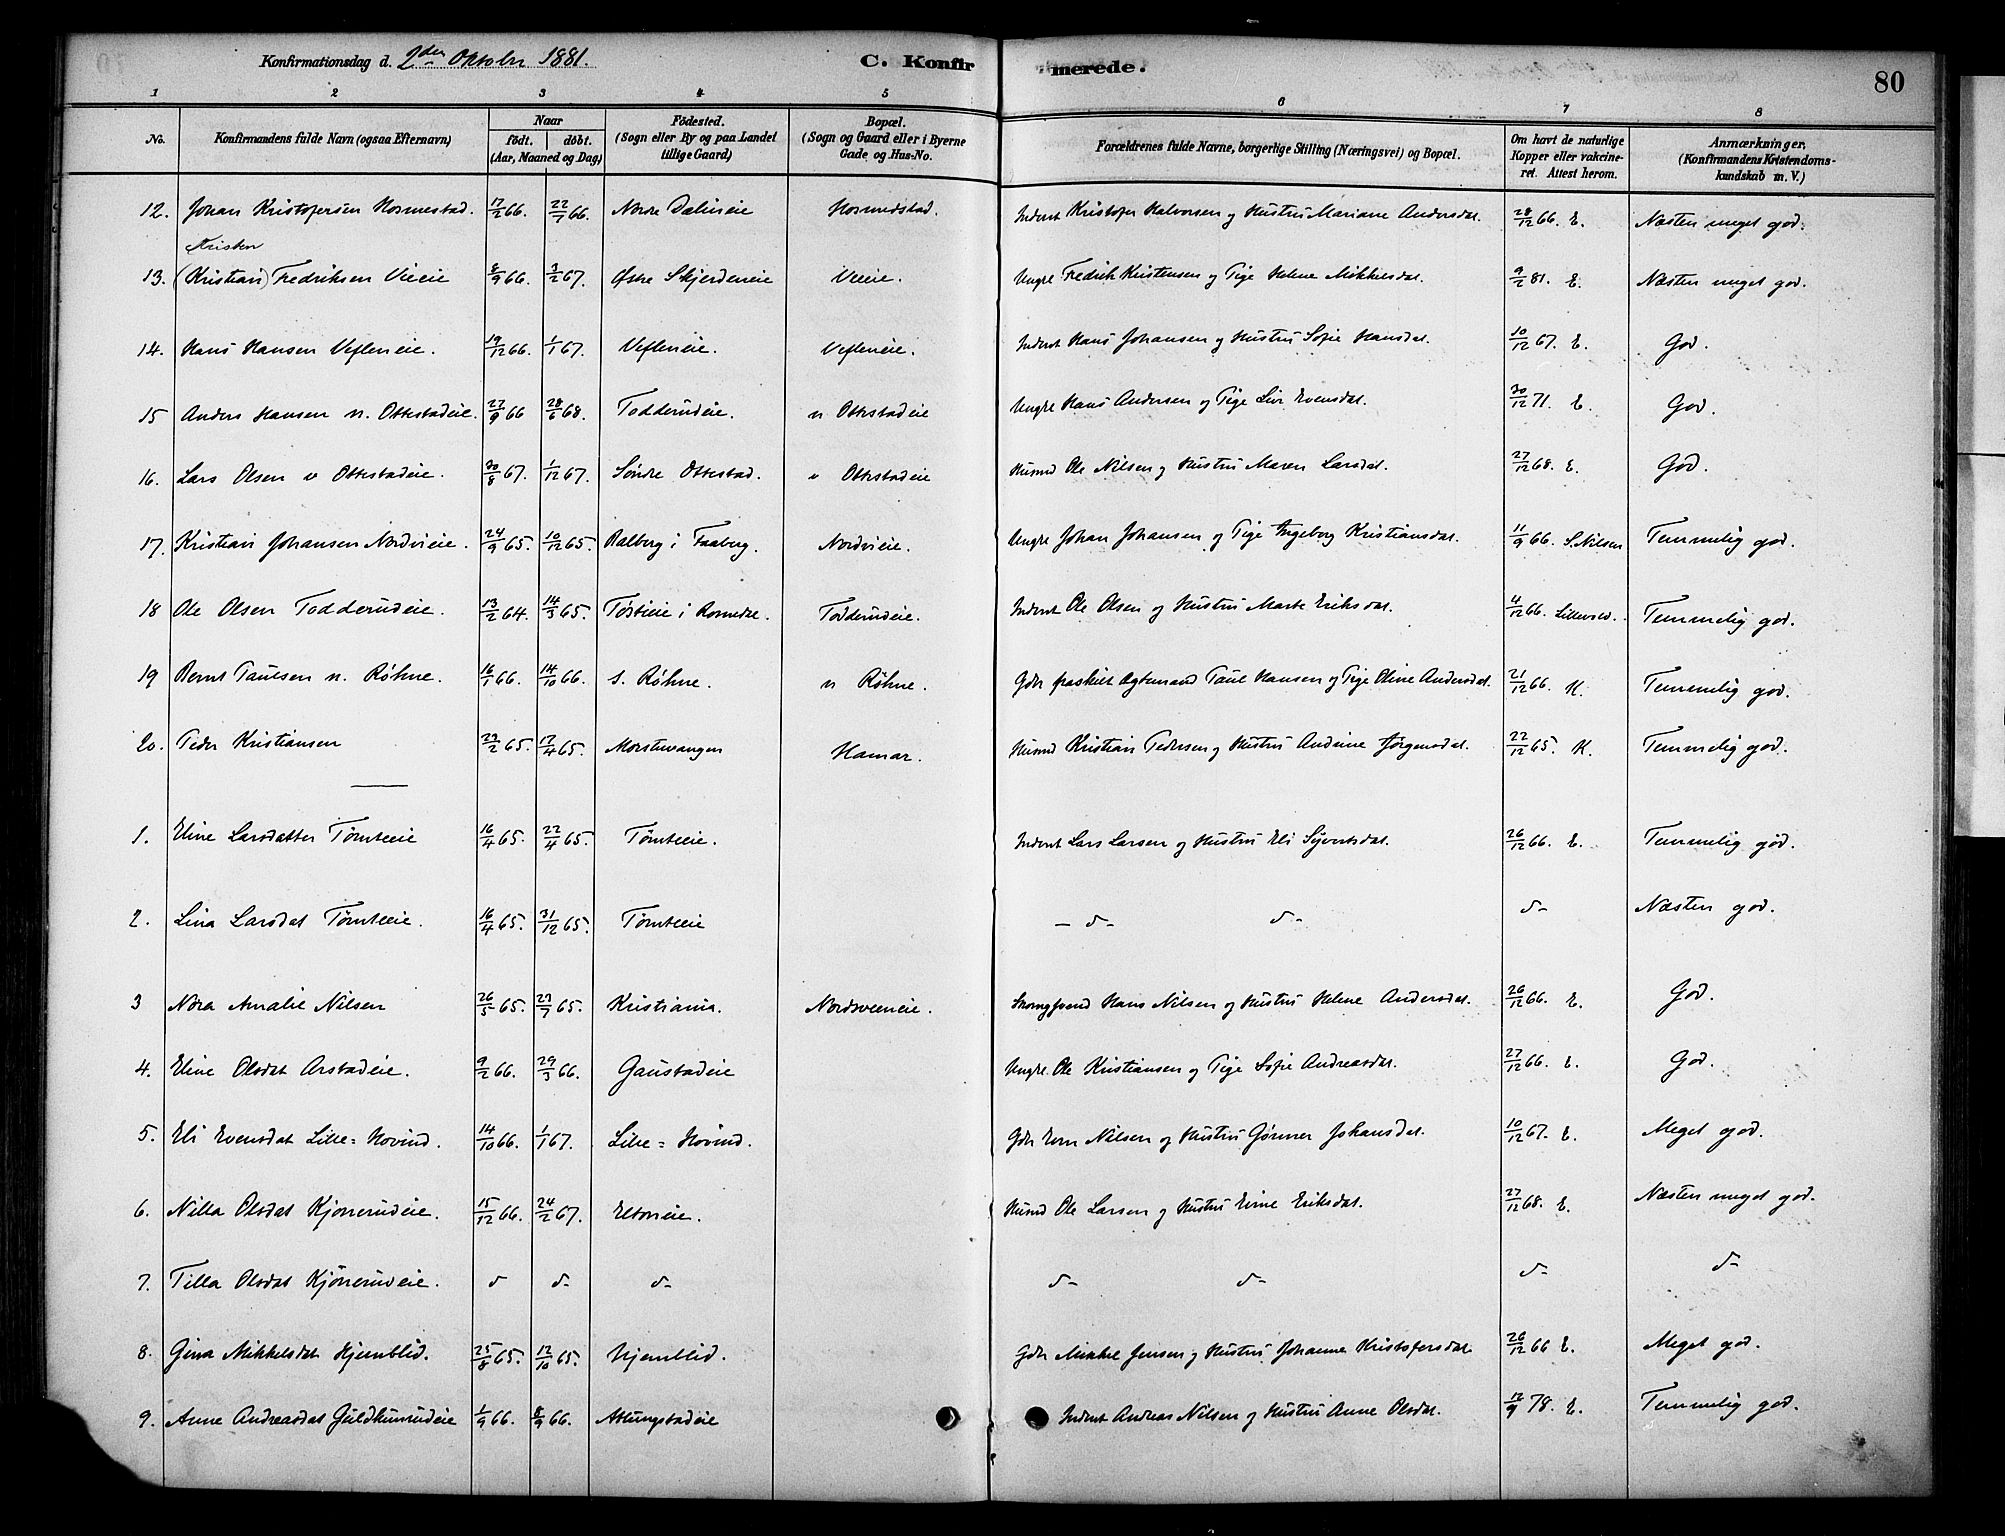 Konfirmationsdag d. 2den Oktober 1881. C. Konfirmerede. 80
1 2 3 4 5 6 7 8
No. Konfirmandens fulde Navn (ogsaa Efternavn) Naar født. døbt. (Aar, Maaned og Dag) Fødested. (Sogn eller By og paa Landet tillige Gaard) Bopæl. (Sogn og Gaard eller i Byerne Gade og Hus-No. Forældrenes fulde Navne, borgerlige Stilling (Næringsvei) og Bopæl. Om havt de naturlige Kopper eller vakcineret. Attest herom. Anmærkninger. (Konfirmandens Kristendomskundskab m. V.)
12. Johan Kristofersen Hosmestad. 17/2 66. 22/7 66. Nordre Dælineie Hosmedstad. Inderst Kristofer Halvorsen og Hustru Mariane Andersdat. 28/12 66. E. Næsten meget god.
Kristen
13. (Kristian) Fredriksen Vieie 8/9 66. 3/2 67. Østre Skjerdeneie Vieie. Ungkl Fredrik Kristensen og Pige Helene Mikkelsdat. 9/2 81. E. Næsten meget god.
14. Hans Hansen Vefleneie. 19/12 66. 1/1 67. Vefleneie. Vefleneie. Inderst Hans Johansen og Hustru Sofie Hansdat. 10/12 67. E. God.
15 Anders Hansen n. Ottestadeie. 27/9 66 28/6 68. Todderudeie. n Ottestadeie Ungkl Hans Andersen og Pige Liv Evensdat. 30/12 71. E. God.
16. Lars Olsen v Ottestadeie. 30/8 67. 1/12 67. Søndre Ottestad. v Ottestadeie Husmd Ole Nilsen og Hustru Maren Larsdat. 27/12 68. E. God.
17. Kristian Johansen Nordvieie. 24/9 65. 10/12 65. Balberg i Faaberg. Nordvieie. Ungkl Johan Johansen og Pige Ingeborg Kristiansdat. 11/9 66. S. Nilsen Temmelig god.
18 Ole Olsen Todderudeie. 13/2 64. 14/3 65. Tøstieie i Romedal. Todderudeie. Inderst Ole Olsen og Hustru Marte Eriksdat. 4/12 66. Temmelig god.
19 Bernt Paulsen n. Røhne. 16/1 66. 14/10 66. s. Røhne. n Røhne. Gdbr fraskilt Ægtemand Paul Hansen og Pige Oline Andersdat. 21/12 66. K. Temmelig god.
20. Peder Kristiansen 23/2 65. 17/4 65. Morstuvangen Hamar. Husmd Kristian Pedersen og Hustru Andrine Jørgensdat. 22/12 65. K. Temmelig god.
1. Eline Larsdatter Tømteeie 16/4 65. 22/4 65. Tømteeie. Inderst Lars Larsen og Hustru Eli Syvertsdat. 26/12 66. E. Temmelig god.
2. Lina Larsdat Tømteeie. 16/4 65. 31/12 65. Tømteeie – d– d– d– Næsten god.
3 Nora Amalie Nilsen 26/5 65. 23/7 65. Kristiania. Nordsveeneie. Hans Nilsen og Hustru Helene Andersdat. 26/12 66. E. God.
4. Eline Olsdat Arstadeie. 9/2 66. 29/3 66. Gaustadeie Ungkl. Ole Kristiansen og Pige Sofie Andreasdat. 27/12 66. E. God.
5. Eli Evensdat Lille=Hovind. 14/10 66. 1/1 67. Lille=Hovind. Gdbr Even Nilsen og Hustru Gørener Johansdat. 10/12 67. E. Meget god.
6. Nilla Olsdat Kjønerudeie. 15/12 66. 24/2 67. Eltoneie. Husmd Ole Larsen og Hustru Eline Eriksdat. 27/12 68. E. Næsten meget god.
7. Tilla Olsdat Kjønerudeie. d d– d– d– d– d– d–
8. Gina Mikkelsdat Hjemblid. 25/8 65. 12/10 65. Hjemblid. Gdbr Mikkel Jensen og Hustru Johanne Kristofersdat. 26/12 66 E. Meget god.
9. Anne Andreasdat Guldhunrudeie 1/9 66. 8/9 66. Attungstadeie Inderst Andreas Nilsen og Hustru Anne Olsdat. 12/9 78. E. Temmelig god.